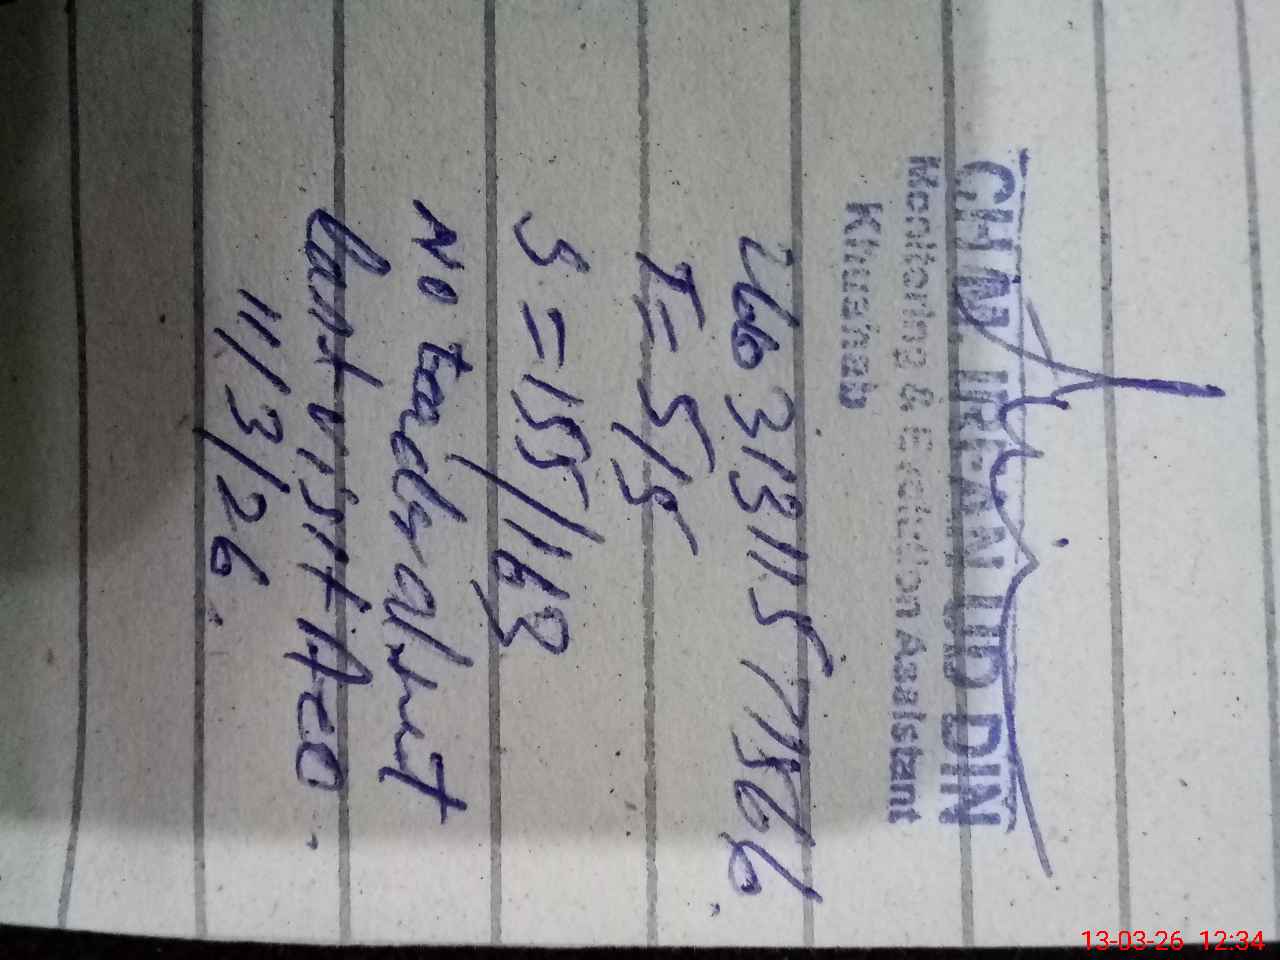 CH M. IRFAN UD DIN
Monitoring & Evalution Assistant
Khushab
T = 5/5
S = 155/163
No teacher absent
Last visit AEO
11/3/26.
13-03-26 12:34